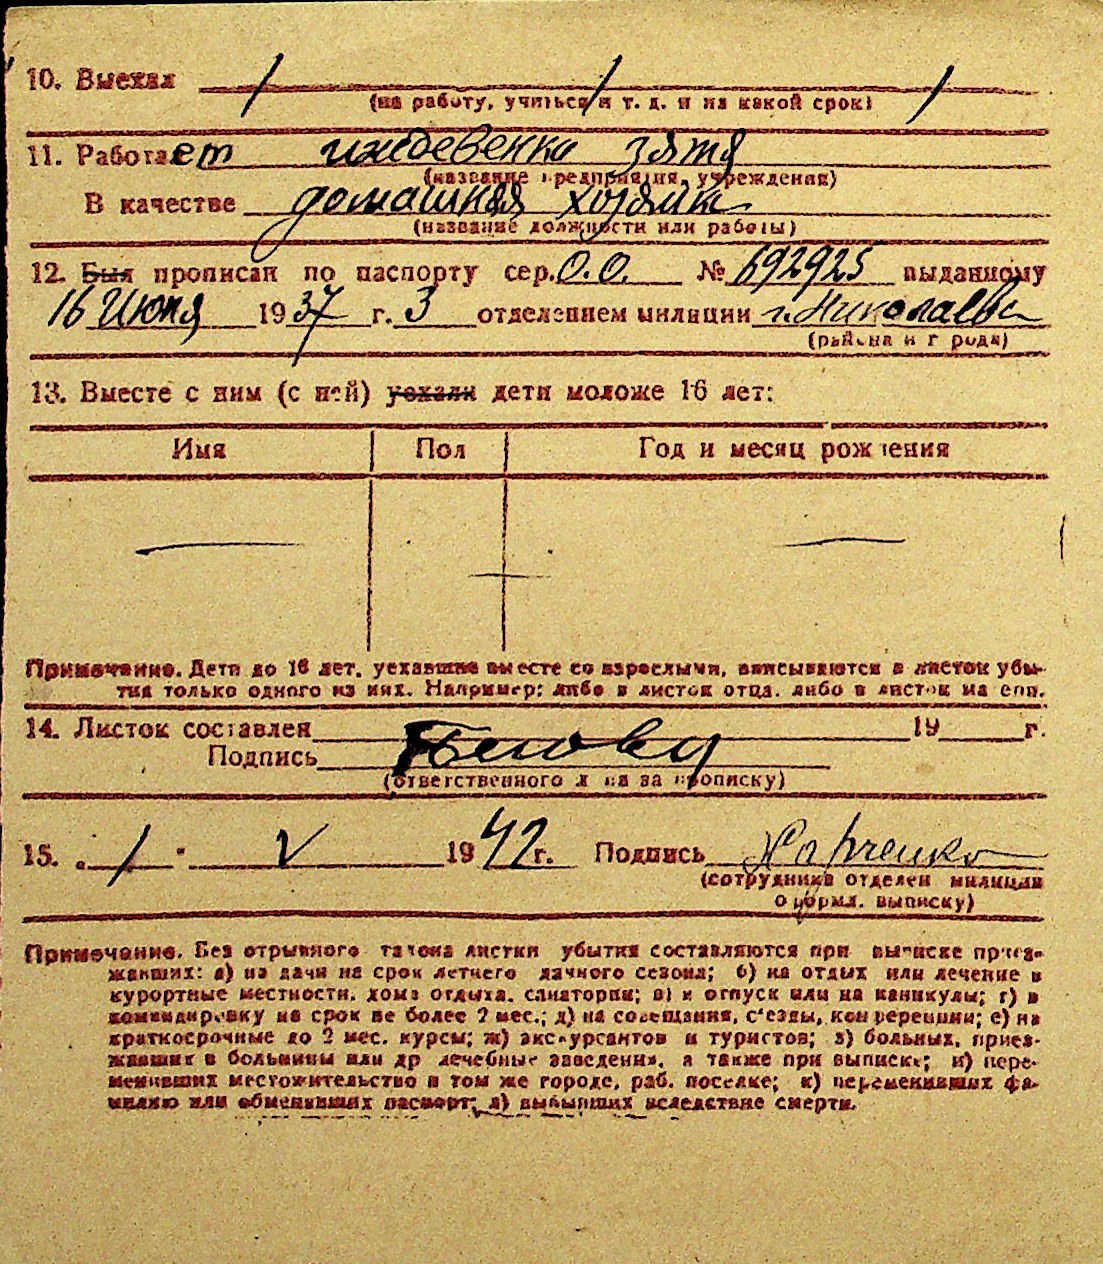 10. Выехал
(на работу, учиться и т. д. и на какой срок)
11. Работает иждевенка зятя
(название предприятия, учреждения)
В качестве домашная хозяйка
(название должности или работы)
12. Был прописан по паспорту сер. О.О. № 692925 выданному
16 Июня 1937 г. 3 отделением милиции г. Николаева
(района и города)
13. Вместе с ним (с ней) уехали дети моложе 16 лет:
Имя Пол Год и месяц рождения
— — —
Примечание. Дети до 16 лет, уехавшие вместе со взрослыми, вписываются в листок убы-
тия только одного из них. Например: либо в листок отца, либо в листок матери.
14. Листок составлен 19 г.
Подпись
(ответственного лица за прописку)
15. „1" V 1942 г. Подпись Харченко
(сотрудника отделен милиции
оформл. выписку)
Примечание. Без отрывного талона листки убытия составляются при выписке приез-
жавших: а) на дачи на срок летнего дачного сезона; б) на отдых или лечение в
курортные местности, дома отдыха, санатории; в) в отпуск или на каникулы; г) в
командировку на срок не более 2 мес.; д) на совещания, с'езды, конференции; е) на
краткосрочные до 2 мес. курсы; ж) экскурсантов и туристов; з) больных, приез-
жавших в больницы или др лечебные заведения, а также при выписке; и) пере-
менивших местожительство в том же городе, раб. поселке; к) переменивших фа-
милию или обменявших паспорт; л) выбывших вследствие смерти.